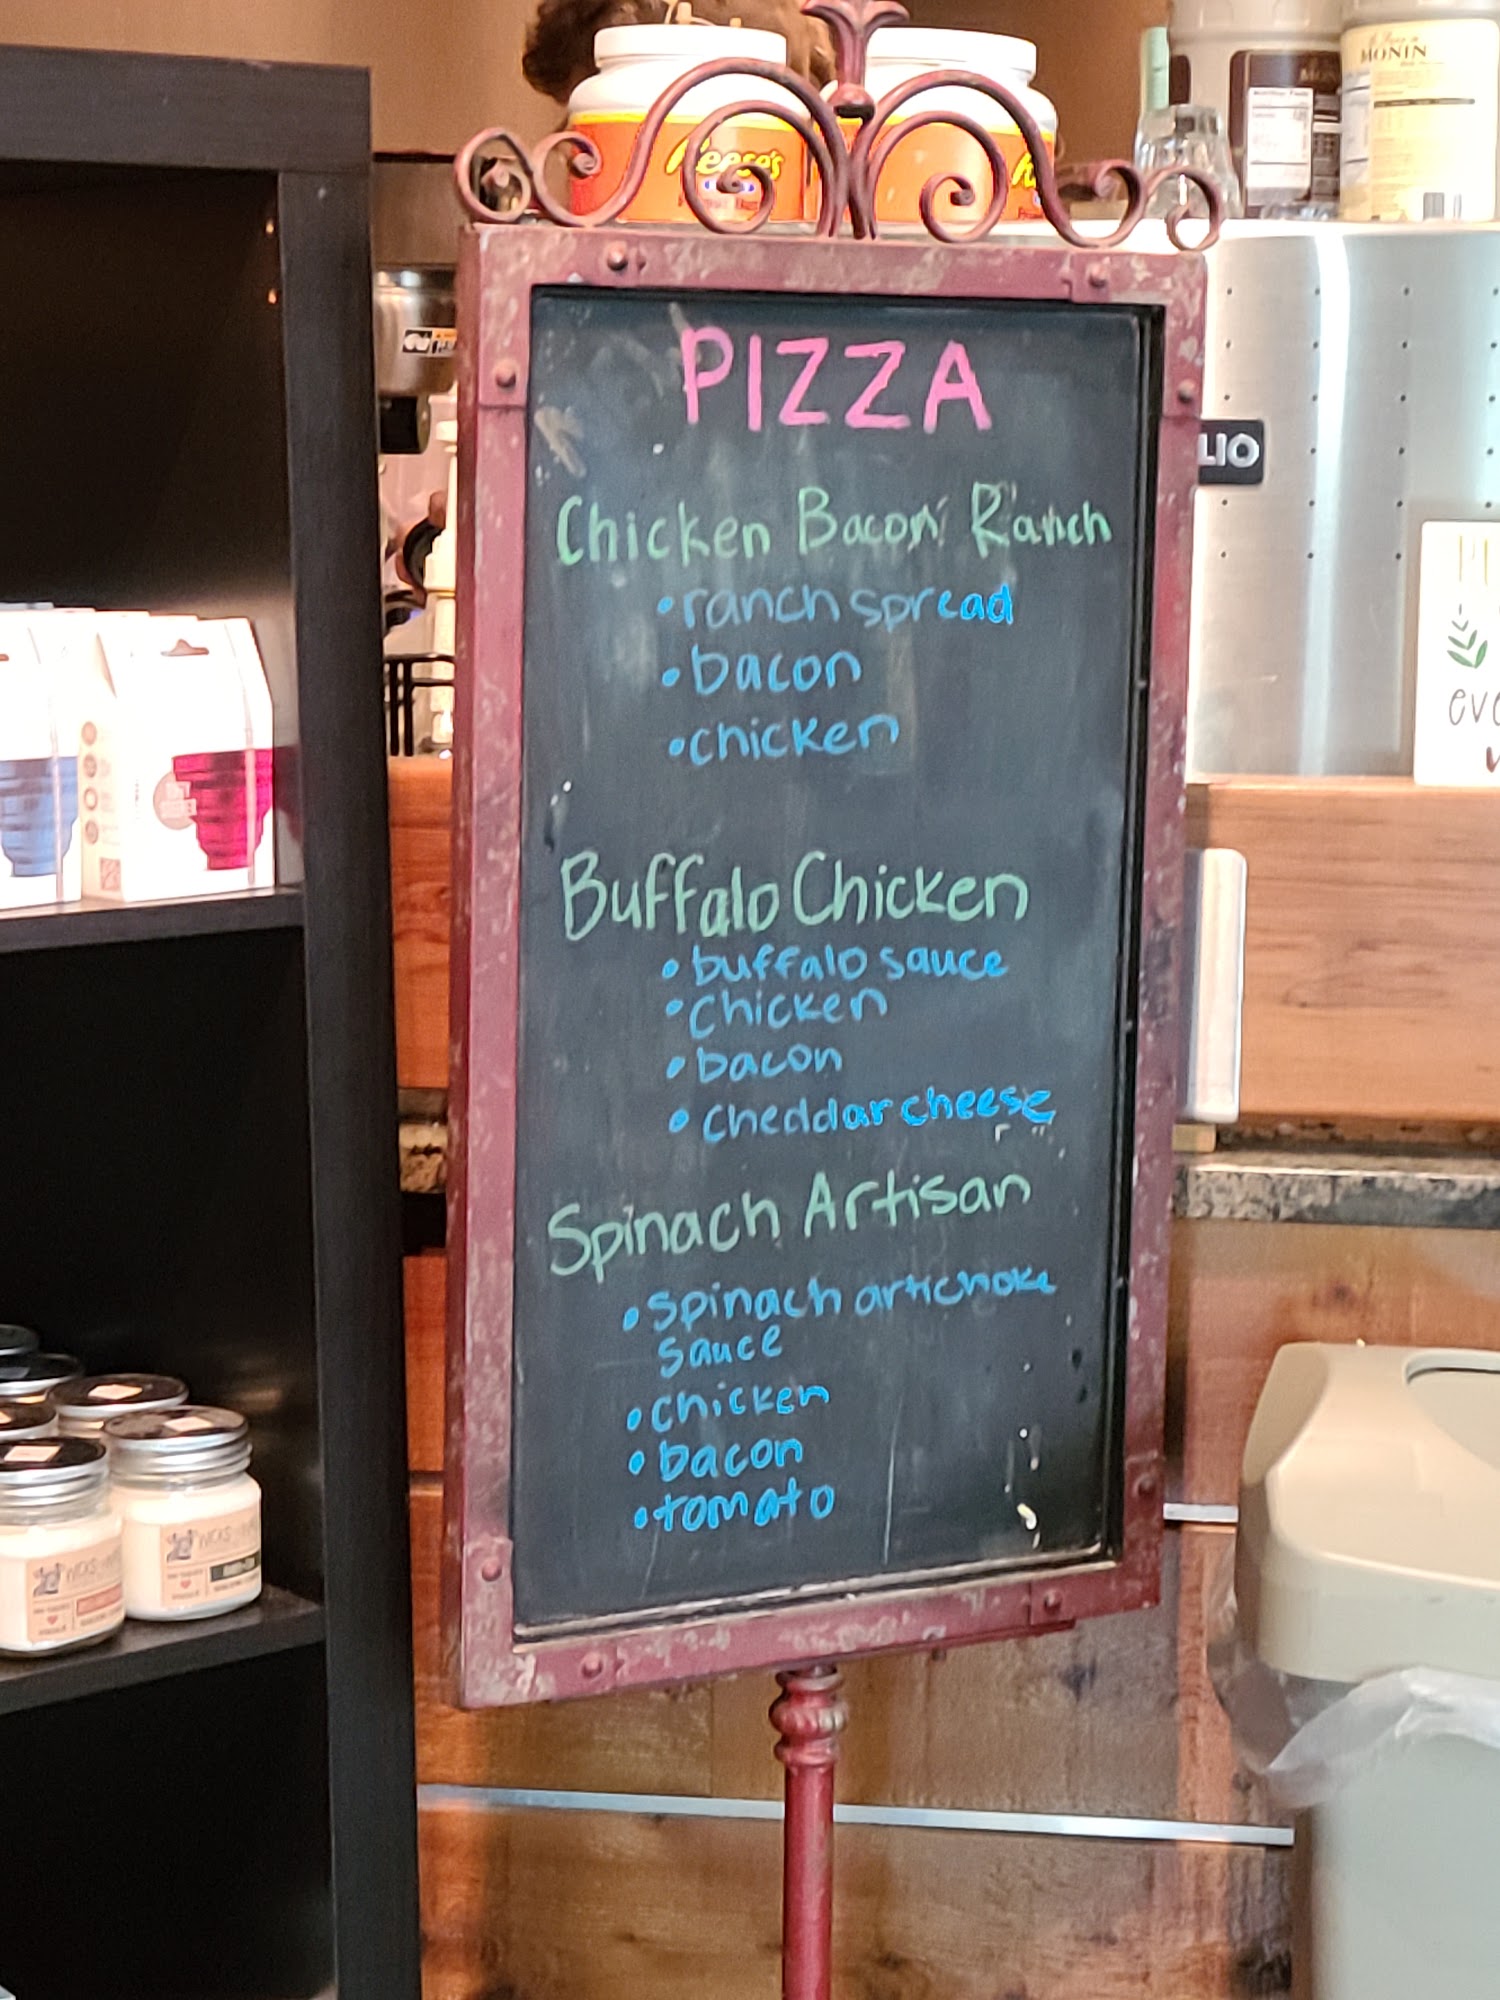 Reese's
MONIN
PIZZA
LIO
Chicken Bacon Ranch
•ranch spread
•bacon
•chicken
Buffalo Chicken
•buffalo sauce
•chicken
•bacon
•cheddar cheese
Spinach Artisan
•spinach artichoke
sauce
•chicken
•bacon
•tomato